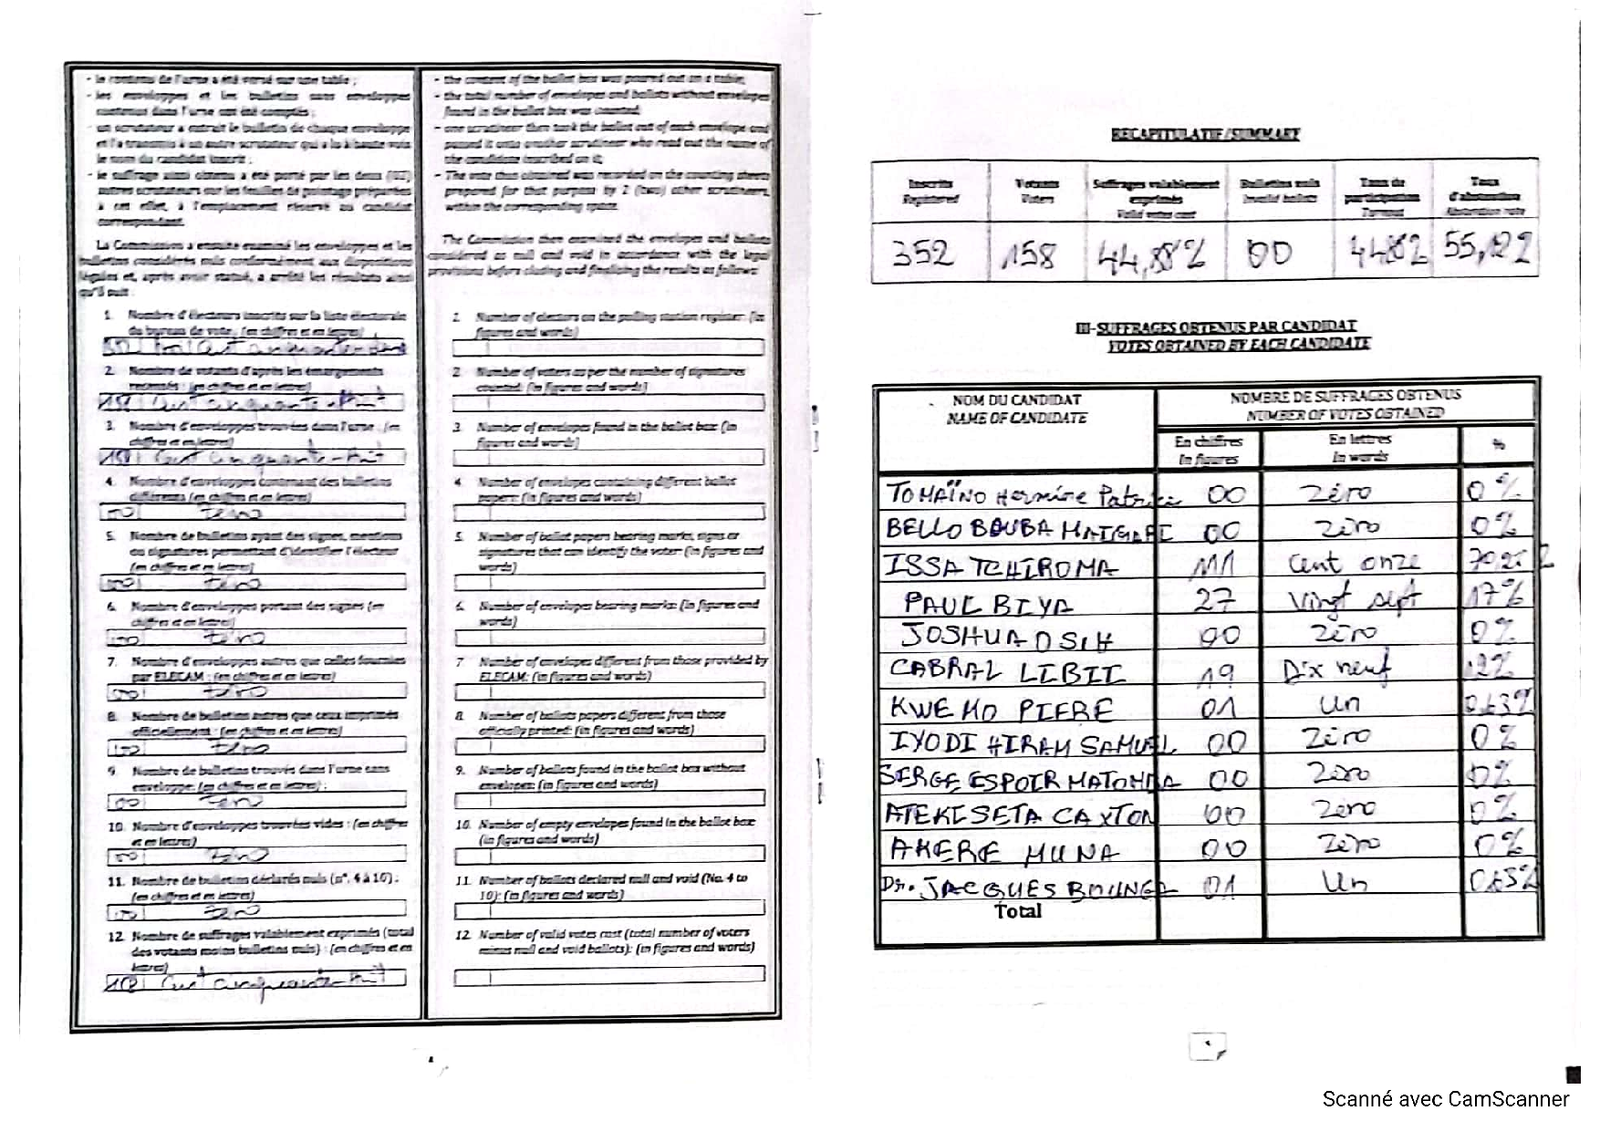 - le contenu de l'urne a été versé sur une table ;
- les enveloppes et les bulletins sans enveloppes
contenus dans l'urne ont été comptés ;
- un scrutateur a extrait le bulletin de chaque enveloppe
et l'a transmis à un autre scrutateur qui a lu à haute voix
le nom du candidat inscrit ;
- le suffrage ainsi obtenu a été porté par les deux (02)
autres scrutateurs sur les feuilles de pointage préparées
à cet effet, à l'emplacement réservé au candidat
correspondant.
La Commission a ensuite examiné les enveloppes et les
bulletins considérés nuls conformément aux dispositions
légales et, après avoir statué, a arrêté les résultats ainsi
qu'il suit :
1. Nombre d'électeurs inscrits sur la liste électorale
du bureau de vote : (en chiffres et en lettres)
cent cinquante
2. Nombre de votants d'après les émargements
recensés : (en chiffres et en lettres)
158 Cent cinquante-huit
3. Nombre d'enveloppes trouvées dans l'urne : (en
chiffres et en lettres)
158 Cent cinquante-huit
4. Nombre d'enveloppes contenant des bulletins
différents (en chiffres et en lettres)
00 zéro
5. Nombre de bulletins ayant des signes, mentions
ou signatures permettant d'identifier l'électeur
(en chiffres et en lettres)
00 zéro
6. Nombre d'enveloppes portant des signes (en
chiffres et en lettres)
00 zéro
7. Nombre d'enveloppes autres que celles fournies
par ELECAM : (en chiffres et en lettres)
00 zéro
8. Nombre de bulletins autres que ceux imprimés
officiellement : (en chiffres et en lettres)
00 zéro
9. Nombre de bulletins trouvés dans l'urne sans
enveloppe: (en chiffres et en lettres) :
00 zéro
10. Nombre d'enveloppes trouvées vides : (en chiffres
et en lettres)
00 zéro
11. Nombre de bulletins déclarés nuls (n°. 4 à 10) :
(en chiffres et en lettres)
00 zéro
12. Nombre de suffrages valablement exprimés (total
des votants moins bulletins nuls) : (en chiffres et en
lettres)
158 Cent cinquante-huit
- the content of the ballot box was poured out on a table;
- the total number of envelopes and ballots without envelopes
found in the ballot box was counted;
- one scrutineer then took the ballot out of each envelope and
passed it onto another scrutineer who read out the name of
the candidate inscribed on it;
- The vote thus obtained was recorded on the counting sheets
prepared for that purpose by 2 (two) other scrutineers,
within the corresponding space.
The Commission then examined the envelopes and ballots
considered as null and void in accordance with the legal
provisions before closing and finalizing the results as follows:
1. Number of electors on the polling station register: (in
figures and words)
2. Number of voters as per the number of signatures
counted: (in figures and words)
3. Number of envelopes found in the ballot box: (in
figures and words)
4. Number of envelopes containing different ballot
papers: (in figures and words)
5. Number of ballot papers bearing marks, signs or
signatures that can identify the voter: (in figures and
words)
6. Number of envelopes bearing marks: (in figures and
words)
7. Number of envelopes different from those provided by
ELECAM: (in figures and words)
8. Number of ballots papers different from those
officially printed: (in figures and words)
9. Number of ballots found in the ballot box without
envelopes: (in figures and words)
10. Number of empty envelopes found in the ballot box:
(in figures and words)
11. Number of ballots declared null and void (No. 4 to
10): (in figures and words)
12. Number of valid votes cast (total number of voters
minus null and void ballots): (in figures and words)
RECAPITULATIF/SUMMARY
Inscrits Registered | Votants Voters | Suffrages valablement exprimés Valid votes cast | Bulletins nuls Invalid ballots | Taux de participation Turnout | Taux d'abstention Abstention rate
352 158 44,88% 00 44,88% 55,12%
III-SUFFRAGES OBTENUS PAR CANDIDAT
VOTES OBTAINED BY EACH CANDIDATE
NOM DU CANDIDAT NOMBRE DE SUFFRAGES OBTENUS
NAME OF CANDIDATE NUMBER OF VOTES OBTAINED
En chiffres En lettres %
In figures In words
TOMAÏNO Hermine Patricia 00 Zéro 0%
BELLO BOUBA MAIGARI 00 Zéro 0%
ISSA TCHIROMA 111 Cent onze 70,25%
PAUL BIYA 27 Vingt sept 17%
JOSHUA OSIH 00 Zéro 0%
CABRAL LIBII 19 Dix neuf 12%
KWEMO PIERE 01 Un 0,63%
IYODI HIRAM SAMUEL 00 Zéro 0%
SERGE ESPOIR MATOMBA 00 Zéro 0%
ATEKI SETA CAXTON 00 Zéro 0%
AKERE MUNA 00 Zéro 0%
Dr. JACQUES BOUNGA 01 Un 0,63%
Total
Scanné avec CamScanner